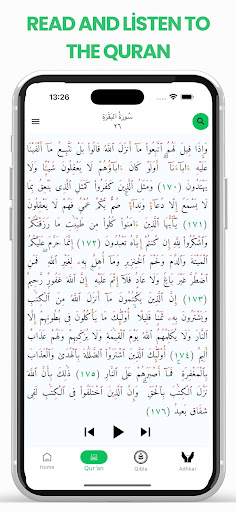 READ AND LİSTEN TO
THE QURAN
13:26
سُورَةُ البَقَرَةِ
٢٦
وَإِذَا قِيلَ لَهُمُ ٱتَّبِعُوا۟ مَآ أَنزَلَ ٱللَّهُ قَالُوا۟ بَلْ نَتَّبِعُ مَآ أَلْفَيْنَا
عَلَيْهِ ءَابَآءَنَآ أَوَلَوْ كَانَ ءَابَآؤُهُمْ لَا يَعْقِلُونَ شَيْـًٔا وَلَا
يَهْتَدُونَ (١٧٠) وَمَثَلُ ٱلَّذِينَ كَفَرُوا۟ كَمَثَلِ ٱلَّذِى يَنْعِقُ بِمَا
لَا يَسْمَعُ إِلَّا دُعَآءً وَنِدَآءً صُمٌّ بُكْمٌ عُمْىٌ فَهُمْ لَا يَعْقِلُونَ
(١٧١) يَـٰٓأَيُّهَا ٱلَّذِينَ ءَامَنُوا۟ كُلُوا۟ مِن طَيِّبَـٰتِ مَا رَزَقْنَـٰكُمْ
وَٱشْكُرُوا۟ لِلَّهِ إِن كُنتُمْ إِيَّاهُ تَعْبُدُونَ (١٧٢) إِنَّمَا حَرَّمَ عَلَيْكُمُ
ٱلْمَيْتَةَ وَٱلدَّمَ وَلَحْمَ ٱلْخِنزِيرِ وَمَآ أُهِلَّ بِهِۦ لِغَيْرِ ٱللَّهِ فَمَنِ
ٱضْطُرَّ غَيْرَ بَاغٍ وَلَا عَادٍ فَلَآ إِثْمَ عَلَيْهِ إِنَّ ٱللَّهَ غَفُورٌ رَّحِيمٌ
(١٧٣) إِنَّ ٱلَّذِينَ يَكْتُمُونَ مَآ أَنزَلَ ٱللَّهُ مِنَ ٱلْكِتَـٰبِ
وَيَشْتَرُونَ بِهِۦ ثَمَنًا قَلِيلًا أُو۟لَـٰٓئِكَ مَا يَأْكُلُونَ فِى بُطُونِهِمْ إِلَّا
ٱلنَّارَ وَلَا يُكَلِّمُهُمُ ٱللَّهُ يَوْمَ ٱلْقِيَـٰمَةِ وَلَا يُزَكِّيهِمْ وَلَهُمْ عَذَابٌ
أَلِيمٌ (١٧٤) أُو۟لَـٰٓئِكَ ٱلَّذِينَ ٱشْتَرَوُا۟ ٱلضَّلَـٰلَةَ بِٱلْهُدَىٰ وَٱلْعَذَابَ
بِٱلْمَغْفِرَةِ فَمَآ أَصْبَرَهُمْ عَلَى ٱلنَّارِ (١٧٥) ذَٰلِكَ بِأَنَّ ٱللَّهَ نَزَّلَ
ٱلْكِتَـٰبَ بِٱلْحَقِّ وَإِنَّ ٱلَّذِينَ ٱخْتَلَفُوا۟ فِى ٱلْكِتَـٰبِ لَفِى
شِقَاقٍۭ بَعِيدٍ (١٧٦)
Home
Qur'an
Qibla
Adhkar